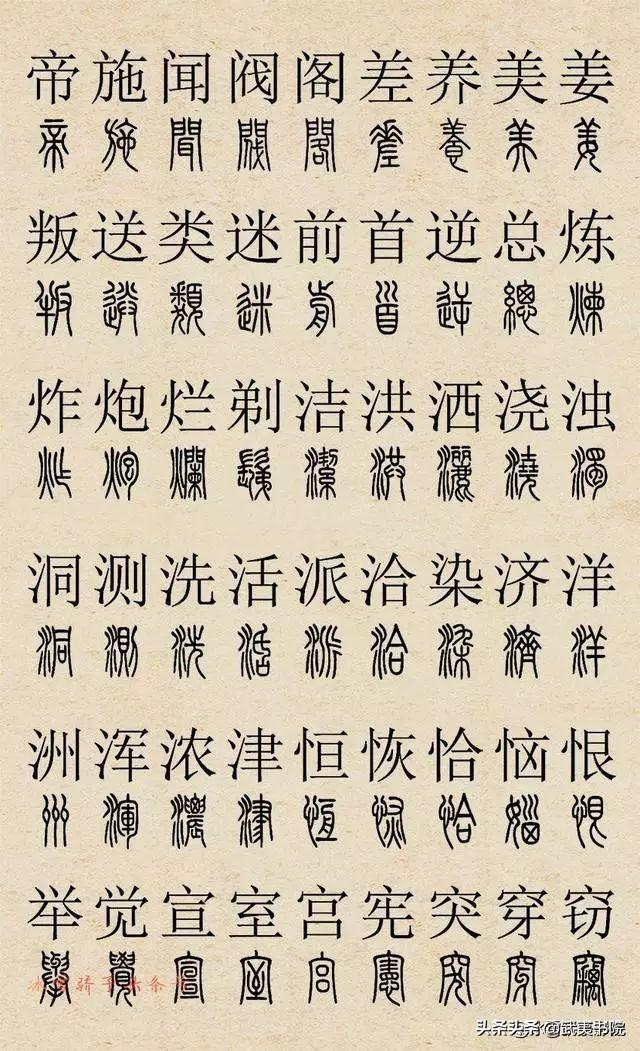 帝施闻阀阁差养美姜
帝施聞閥閣差養美姜
叛送类迷前首逆总炼
叛送類迷前首逆總煉
炸炮烂剃洁洪洒浇浊
炸炮爛鬀潔洪灑澆濁
洞测洗活派洽染济洋
洞測洗活派洽染濟洋
洲浑浓津恒恢恰恼恨
州渾濃津恆恢恰㛴恨
举觉宣室宫宪突穿窃
舉覺宣室宮憲突穿竊
头条头条@武夷书院